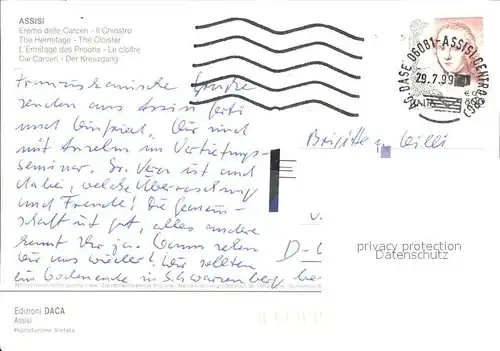 ASSISI
Eremo delle Carceri - Il Chiostro
The Hermitage - The Cloister
L'Ermitage des Prisons - Le cloître
Die Carceri - Der Kreuzgang
06081-ASSISI CENTRO (PG)
29.7.99
Franziskanische Grüße
senden aus Assisi
und Winfried. Wir sind
mit Anselm im Vertiefungs-
seminar. Sr. Vera ist auch
dabei, welche Überraschung
und Freude! Die Gemein-
schaft ist gut, alles andere
kennt Ihr ja. Wann sehen
wir uns wieder? Wir sollten
ein Wochenende in Schwarzenberg
Brigitte u. Willi
D-
privacy protection
Datenschutz
Edizioni DACA
Assisi
Riproduzione Vietata